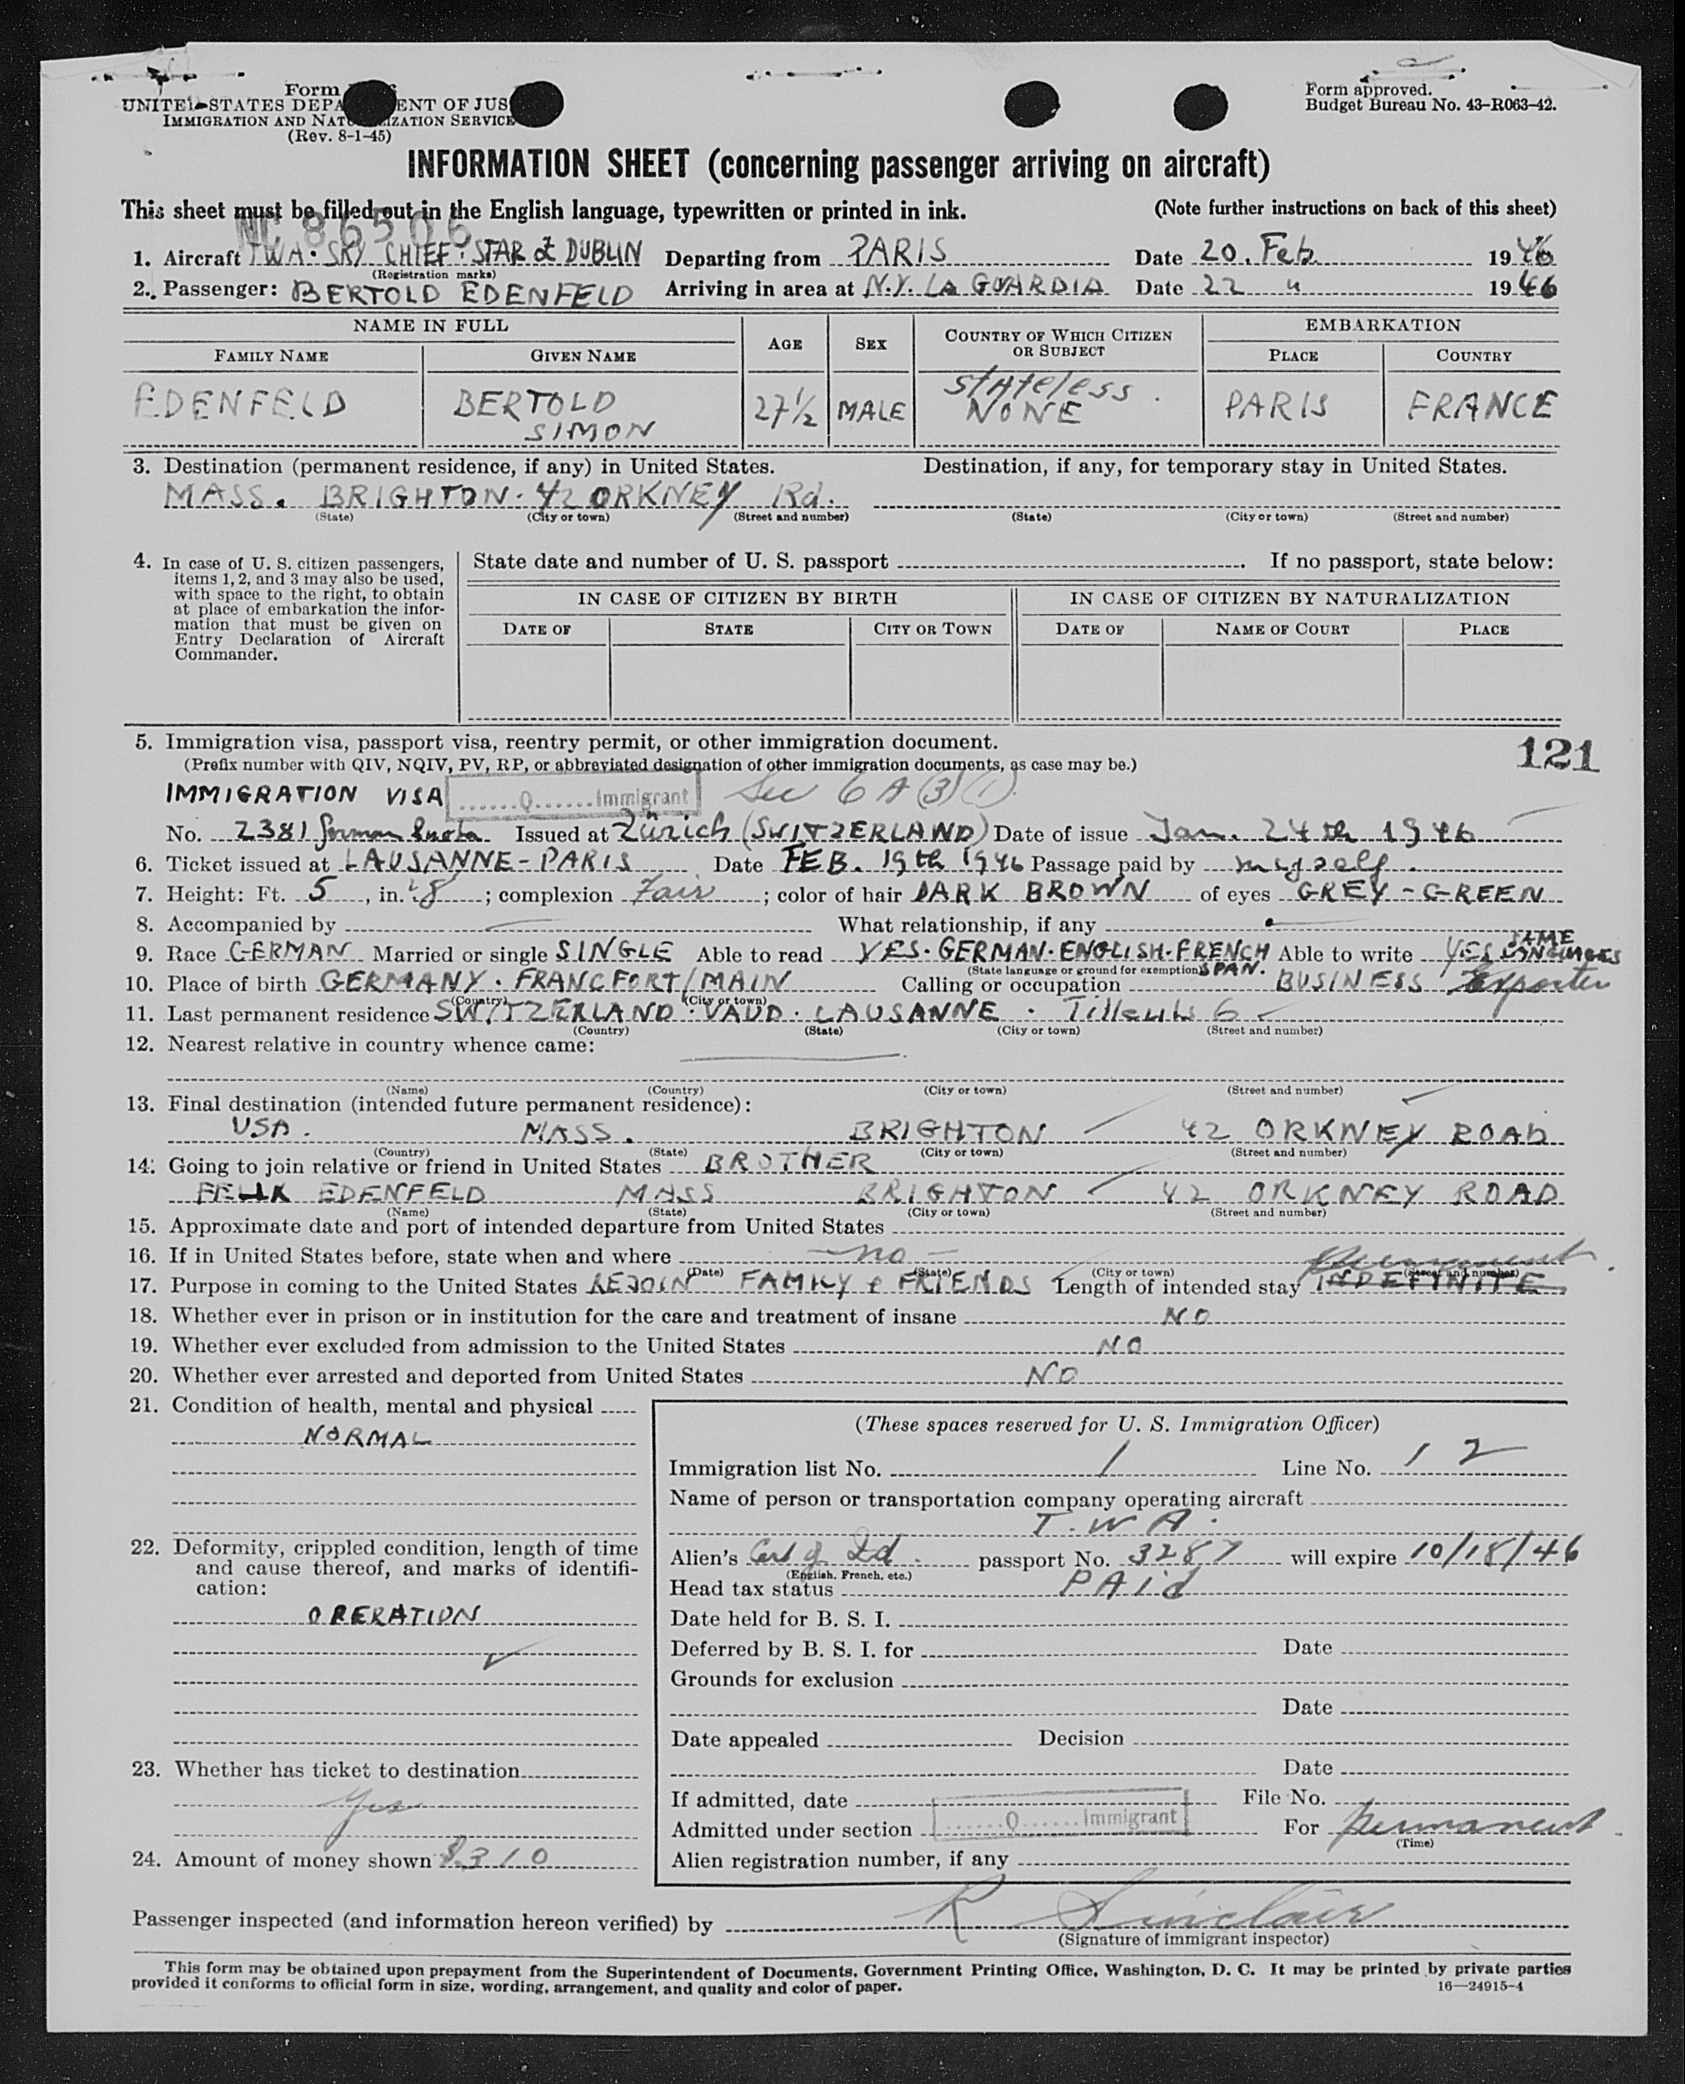 Form
UNITED STATES DEPARTMENT OF JUSTICE
IMMIGRATION AND NATURALIZATION SERVICE
(Rev. 8-1-45)
Form approved.
Budget Bureau No. 43-R063-42.
INFORMATION SHEET (concerning passenger arriving on aircraft)
This sheet must be filled out in the English language, typewritten or printed in ink. (Note further instructions on back of this sheet)
NC 86506
1. Aircraft TWA · SKY CHIEF · STAR of DUBLIN Departing from PARIS Date 20. Feb. 1946
(Registration marks)
2. Passenger: BERTOLD EDENFELD Arriving in area at N.Y. LA GUARDIA Date 22 " 1946
NAME IN FULL AGE SEX COUNTRY OF WHICH CITIZEN OR SUBJECT EMBARKATION
FAMILY NAME GIVEN NAME PLACE COUNTRY
stateless.
EDENFELD BERTOLD 27 1/2 MALE NONE PARIS FRANCE
SIMON
3. Destination (permanent residence, if any) in United States. Destination, if any, for temporary stay in United States.
MASS. BRIGHTON · 42 ORKNEY Rd.
(State) (City or town) (Street and number) (State) (City or town) (Street and number)
4. In case of U. S. citizen passengers, items 1, 2, and 3 may also be used, with space to the right, to obtain at place of embarkation the information that must be given on Entry Declaration of Aircraft Commander.
State date and number of U. S. passport . If no passport, state below:
IN CASE OF CITIZEN BY BIRTH IN CASE OF CITIZEN BY NATURALIZATION
DATE OF STATE CITY OR TOWN DATE OF NAME OF COURT PLACE
5. Immigration visa, passport visa, reentry permit, or other immigration document. 121
(Prefix number with QIV, NQIV, PV, RP, or abbreviated designation of other immigration documents, as case may be.)
IMMIGRATION VISA ......Q......Immigrant Sec 6 A (3) (1)
No. 2381 German Quota Issued at Zürich (SWITZERLAND) Date of issue Jan. 24th 1946
6. Ticket issued at LAUSANNE - PARIS Date FEB. 19th 1946 Passage paid by myself.
7. Height: Ft. 5, in. 8; complexion Fair; color of hair DARK BROWN of eyes GREY - GREEN
8. Accompanied by What relationship, if any
9. Race GERMAN Married or single SINGLE Able to read YES · GERMAN · ENGLISH · FRENCH SPAN. Able to write YES SAME LANGUAGES
(State language or ground for exemption)
10. Place of birth GERMANY · FRANCFORT/MAIN Calling or occupation BUSINESS Exporter
(Country) (City or town)
11. Last permanent residence SWITZERLAND · VAUD · LAUSANNE · Tilleuls 6
(Country) (State) (City or town) (Street and number)
12. Nearest relative in country whence came:
(Name) (Country) (City or town) (Street and number)
13. Final destination (intended future permanent residence):
USA. MASS. BRIGHTON 42 ORKNEY ROAD
(Country) (State) (City or town) (Street and number)
14. Going to join relative or friend in United States BROTHER
FELIX EDENFELD MASS BRIGHTON 42 ORKNEY ROAD
(Name) (State) (City or town) (Street and number)
15. Approximate date and port of intended departure from United States
16. If in United States before, state when and where - no -
(Date) (State) (City or town) (Street and number)
permanent
17. Purpose in coming to the United States REJOIN FAMILY & FRIENDS Length of intended stay INDEFINITE
18. Whether ever in prison or in institution for the care and treatment of insane NO
19. Whether ever excluded from admission to the United States NO
20. Whether ever arrested and deported from United States NO
21. Condition of health, mental and physical
NORMAL
22. Deformity, crippled condition, length of time and cause thereof, and marks of identification:
OPERATION
23. Whether has ticket to destination
Yes
24. Amount of money shown $310
(These spaces reserved for U. S. Immigration Officer)
Immigration list No. 1 Line No. 12
Name of person or transportation company operating aircraft
T.W.A.
Alien's Cert of Id. passport No. 3287 will expire 10/18/46
(English, French, etc.)
Head tax status PAID
Date held for B. S. I.
Deferred by B. S. I. for Date
Grounds for exclusion
Date
Date appealed Decision
Date
If admitted, date File No.
Admitted under section ......Q......Immigrant For permanent
(Time)
Alien registration number, if any
Passenger inspected (and information hereon verified) by R Sinclair
(Signature of immigrant inspector)
This form may be obtained upon prepayment from the Superintendent of Documents, Government Printing Office, Washington, D. C. It may be printed by private parties
provided it conforms to official form in size, wording, arrangement, and quality and color of paper. 16—24915-4